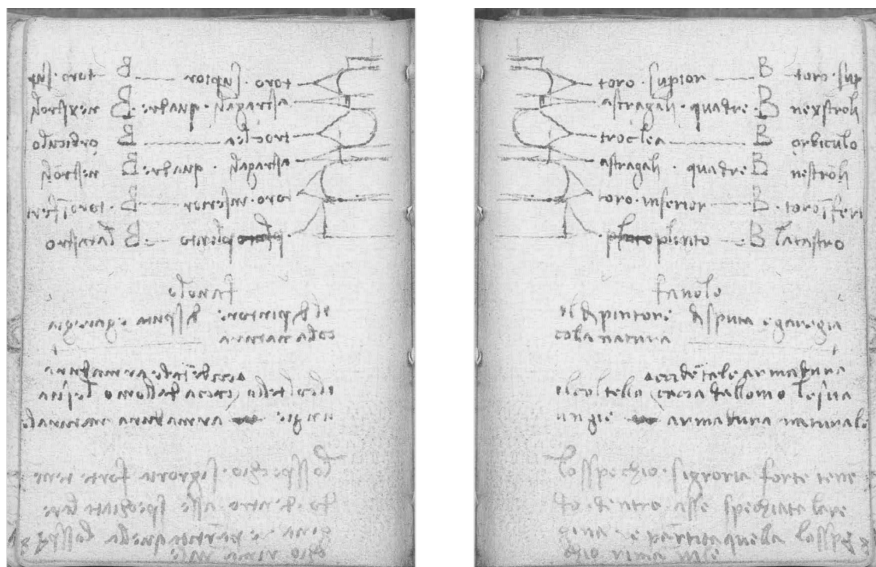 toro · supior B toro · sup
astragali · quadre B nexstroli
troclea B orbiculo
astragali · quadre B nestroli
toro · inferior B · toro iferi
plinto B latastro
favola
el dipintore disputa e garegia
cola natura
accidētale armadura
el coltello caccia dallomo le sua
ungie armadura naturale
lo sspechio · signoria forte tene
do · dentro asse spechiata la re
gina · e partita quella lo sspe
chio rima